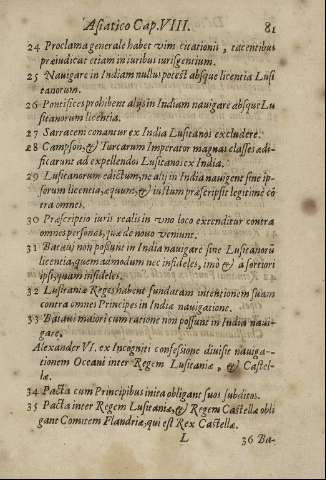 Asiatico Cap. VIII. 81
24 Proclama generale habet vim citationis, tacentibus
præiudicat etiam in iuribus iurisgentium.
25 Nauigare in Indiam nullus potest absque licentia Lusi
tanorum.
26 Pontifices prohibent alijs in Indiam nauigare absque Lu
sitanorum licentia.
27 Sarraceni conantur ex India Lusitanos excludere.
28 Campson, & Turcarum Imperator magnas classes ædi-
ficarunt ad expellendos Lusitanos ex India.
29 Lusitanorum edictum, ne alij in India nauigent sine ip-
sorum licentia, æquum, & iustum præscripsit legitimè cō
tra omnes.
30 Præscriptio iuris realis in vno loco extenditur contra
omnes personas, quæ de nouo veniunt.
31 Bataui non possunt in India nauigare sine Lusitanorū
licentia, quemadmodum nec infideles, imò & a fortiori
ipsi, quam infideles.
32 Lusitaniæ Reges habent fundatam intentionem suam
contra omnes Principes in India nauigatione.
33 Bataui maiori cum ratione non possunt in India naui-
gare.
Alexander VI. ex Incogniti confessione diuisit nauiga-
tionem Oceani inter Regem Lusitaniæ, & Castel-
læ.
34 Pacta cum Principibus inita obligant suos subditos.
35 Pacta inter Regem Lusitaniæ, & Regem Castellæ obli
gant Comitem Flandriæ, qui est Rex Castellæ.
L 36 Ba-